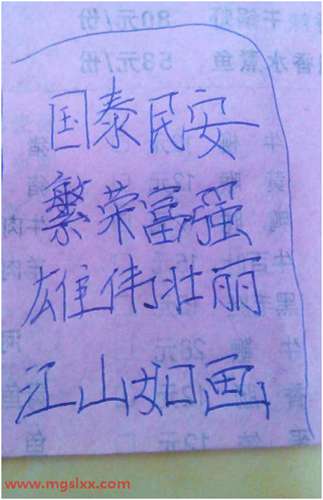 国泰民安
繁荣富强
雄伟壮丽
江山如画
www.mgslxx.com